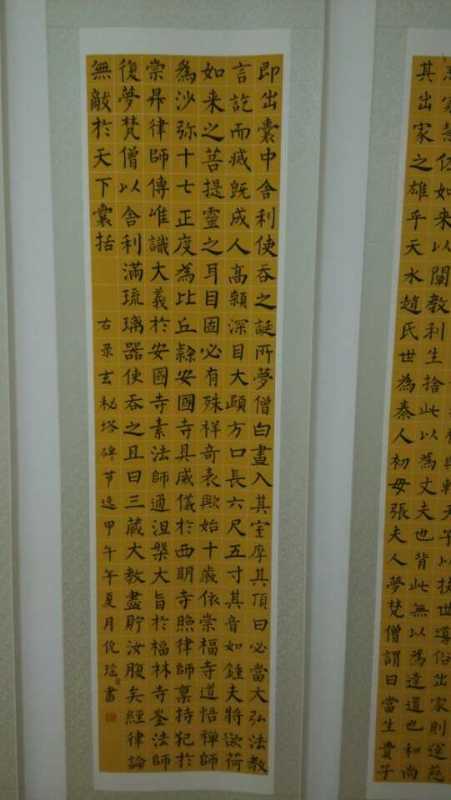 家為佐如来以闡教利生捨此以為丈夫也背此無以為達道也和尚
其出家之雄乎天水趙氏世為秦人初母張夫人夢梵僧謂曰當生貴子
即出囊中舍利使吞之誕所夢僧白晝入其室摩其頂曰必當大弘法教
言訖而滅既成人高顙深目大頤方口長六尺五寸其音如鍾夫特欲荷
如来之菩提靈之耳目固必有殊祥奇表歟始十歲依崇福寺道悟禪師
為沙弥十七正度為比丘隸安國寺具威儀於西明寺照律師稟持犯於
崇昇律師傳唯識大義於安國寺素法師通涅槃大旨於福林寺崟法師
復夢梵僧以舍利滿琉璃器使吞之且曰三藏大教盡貯汝腹矣經律論
無敵於天下囊括
右录玄秘塔碑节选甲午年夏月倪瑶書